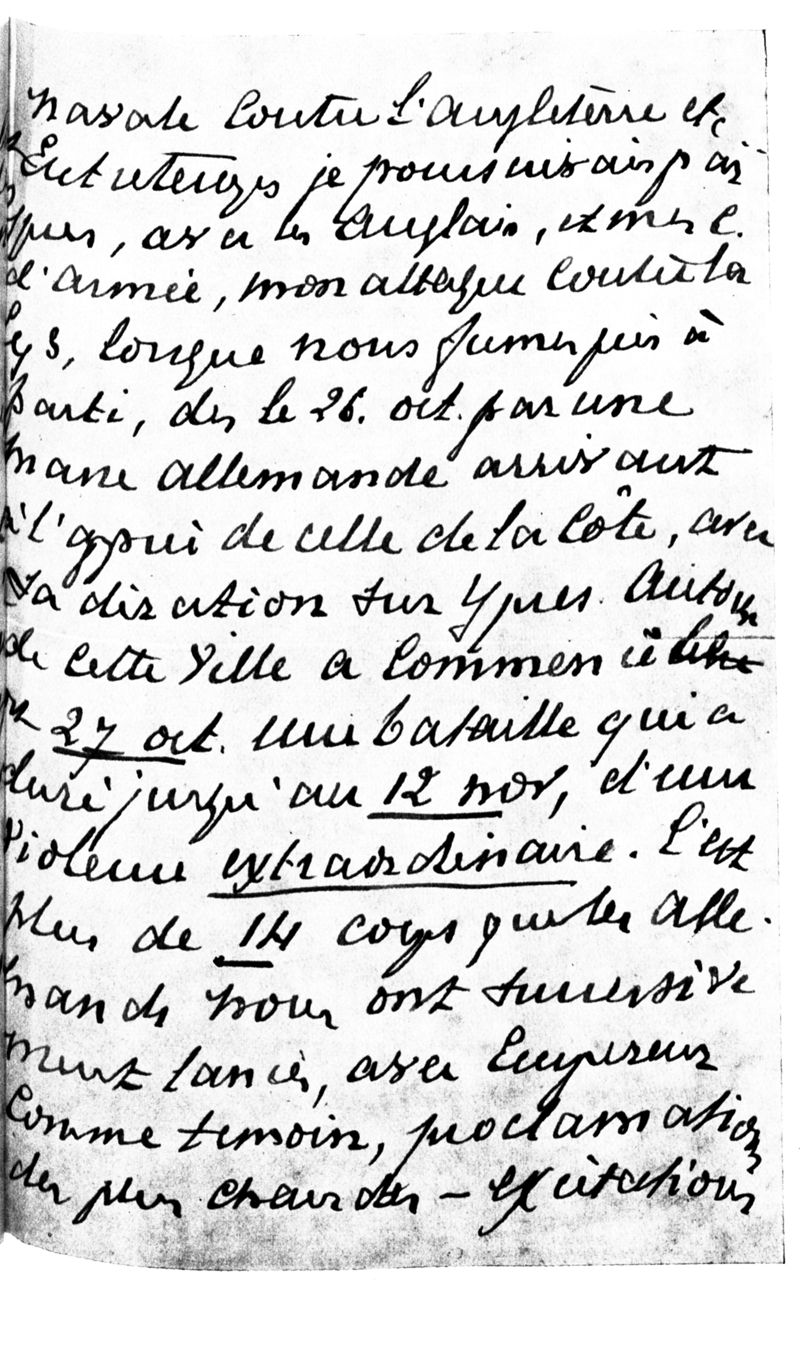 navale contre l'Angleterre etc
Entretemps je poursuivais par
Ypres, avec les Anglais, et mes C.
d'armée, mon attaque contre la
Lys, lorsque nous fumes pris à
parti, des le 26. oct. par une
mane allemande arrivant
à l'appui de celle de la Côte, avec
sa direction sur Ypres. Autour
de cette Ville a commencé
27 oct. une bataille qui a
duré jusqu'au 12 nov, d'une
violence extraordinaire. C'est
plus de 14 corps que les Alle-
mands nous ont successive
ment lancés, avec Empereur
comme temoin, proclamations
des plus chaudes – excitations